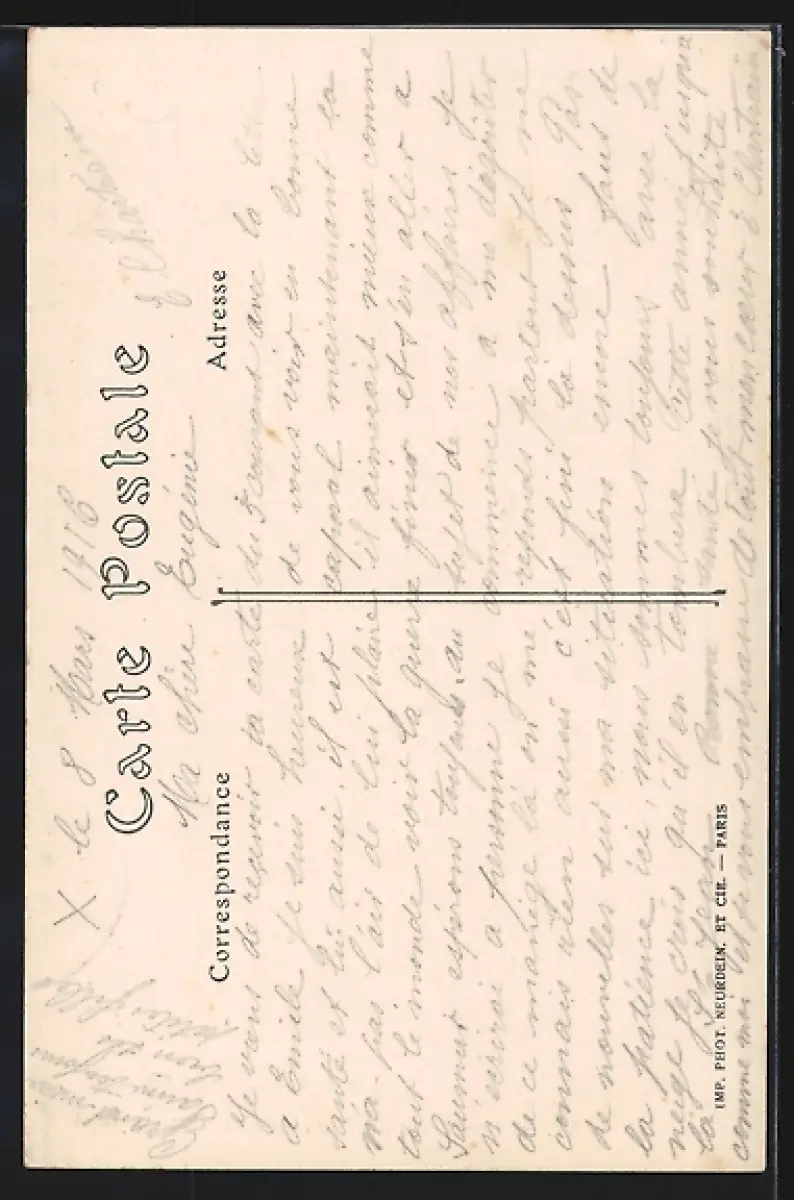 X le 8 Mars 1916
Carte Postale
Ma chère Eugénie
E Chartrain
Correspondance
Adresse
Je viens de recevoir ta carte du 3 courant avec la
a Emile je suis heureux de vous voir en bonne
santé et lui aussi, il est caporal maintenant ca
na pas l'air de lui plaire il aimerait mieux comme
tout le monde voir la guerre finir et s'en aller a
Saumur espérons toujours. au sujet de nos affaires je
n'écrirai a personne je commence a me dégoûter
de ce manège là on me reponds partout je ne
connais rien aussi c'est fini la dessus Pas
de nouvelles sur ma situation encore faut de
la patience ici, nous sommes toujours avec la
neige je crois qu'il en tombera cette année jusqua
la St Jean Bonne santé je vous souhaite
comme moi et je vous embrasse de tout mon cœur E Chartrain
petite fille
IMP. PHOT. NEURDEIN. ET CIE. — PARIS